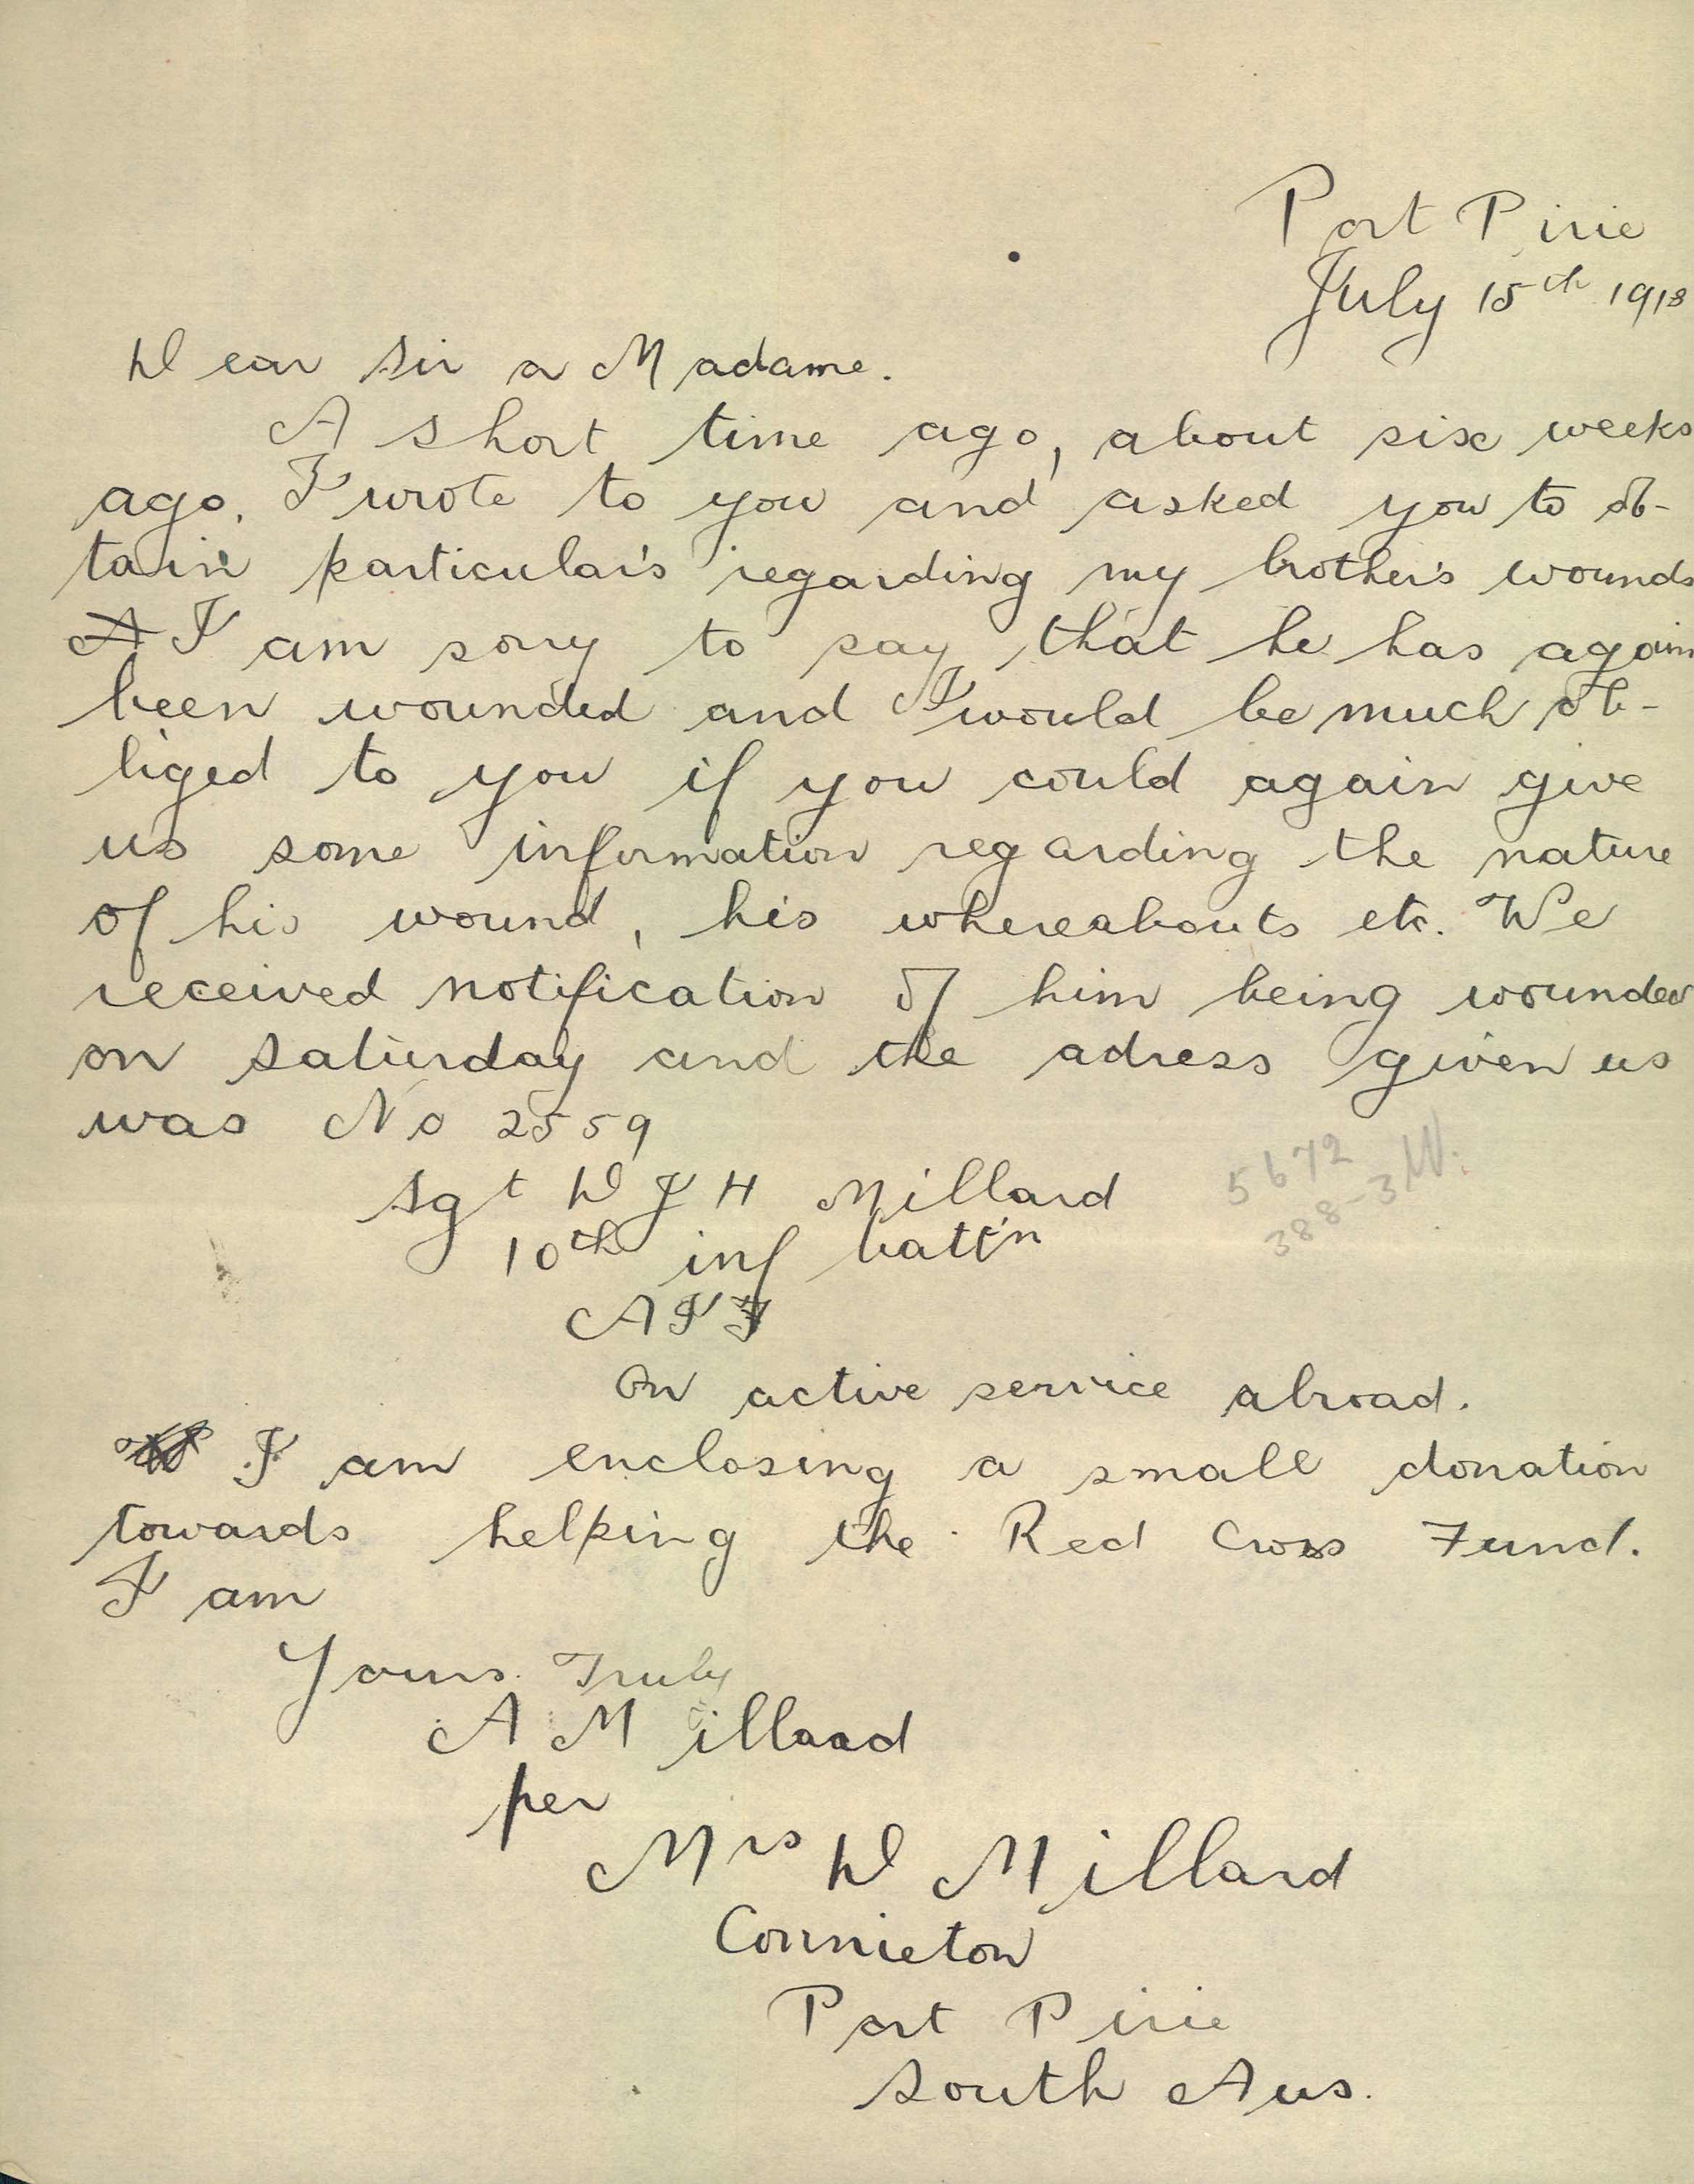 Port Pirie
July 15th 1918
Dear Sir or Madame.
A short time ago, about six weeks
ago, I wrote to you and asked you to ob-
tain particular's regarding my brother's wounds
A I am sorry to say that he has again
been wounded and I would be much ob-
liged to you if you could again give
us some information regarding the nature
of his wound, his whereabouts etc. We
received notification of him being wounded
on Saturday and the adress given us
was No 2559
Sgt D J H Millard
10th inf batt'n
A I F
On active service abroad.
I am enclosing a small donation
towards helping the Red Cross Fund.
I am
Yours Truly
A Millard
per
Mrs D Millard
Port Pirie
South Aus.
5672
388-3W.